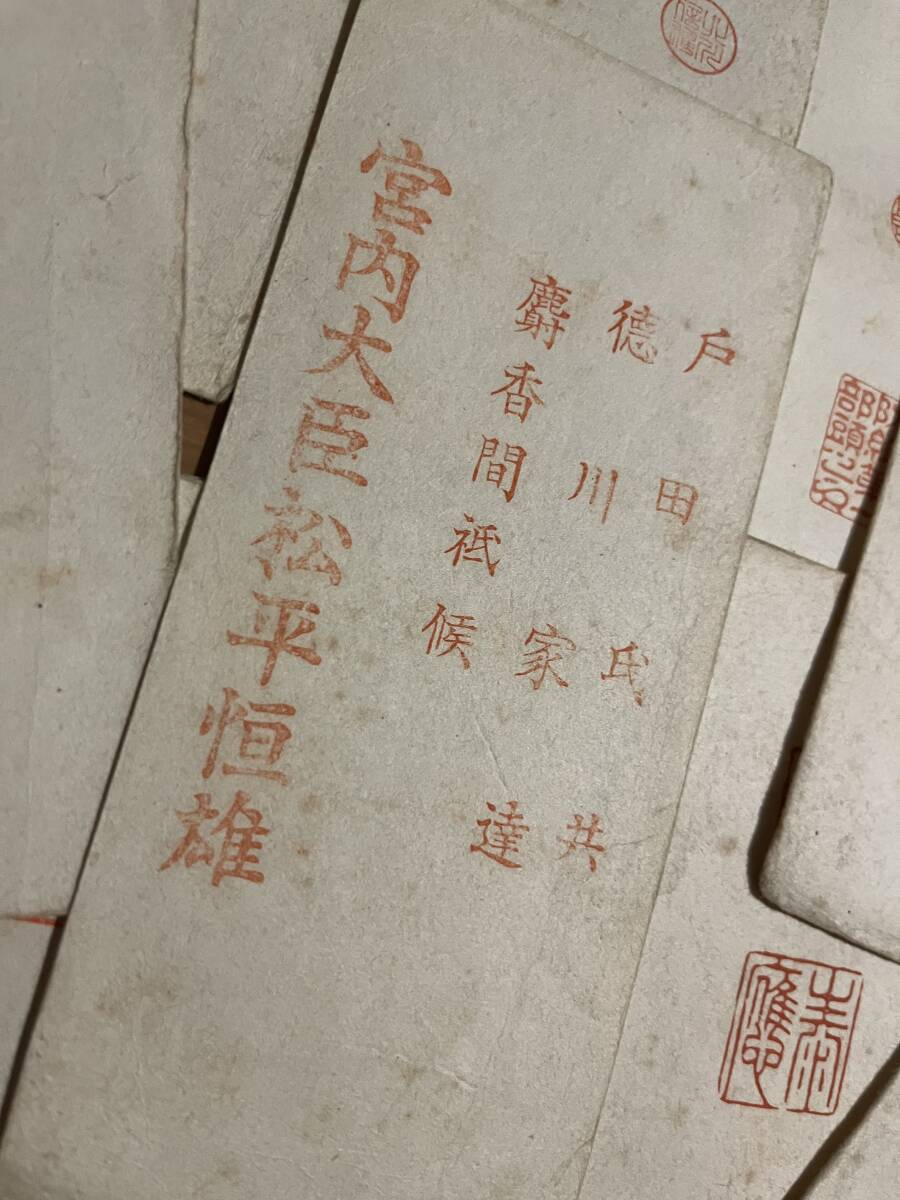 戶田氏共
德川家達
麝香間祗候
宮内大臣松平恒雄